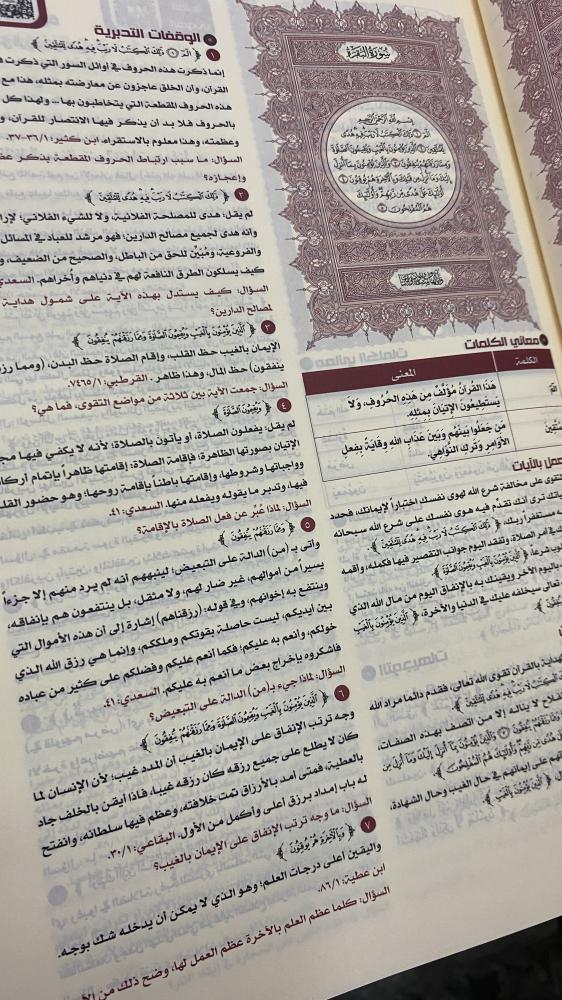 سُورَةُ البَقَرَةِ
بِسْمِ اللَّهِ الرَّحْمَٰنِ الرَّحِيمِ
الٓمٓ ١ ذَٰلِكَ الْكِتَابُ لَا رَيْبَ فِيهِ هُدًى
لِلْمُتَّقِينَ ٢ الَّذِينَ يُؤْمِنُونَ بِالْغَيْبِ وَيُقِيمُونَ الصَّلَاةَ
وَمِمَّا رَزَقْنَاهُمْ يُنْفِقُونَ ٣ وَالَّذِينَ يُؤْمِنُونَ بِمَا أُنْزِلَ
إِلَيْكَ وَمَا أُنْزِلَ مِنْ قَبْلِكَ وَبِالْآخِرَةِ هُمْ يُوقِنُونَ ٤
أُولَٰئِكَ عَلَىٰ هُدًى مِنْ رَبِّهِمْ وَأُولَٰئِكَ
هُمُ الْمُفْلِحُونَ ٥
معاني الكلمات
الكلمة المعنى
هَذَا القُرْآنُ مُؤَلَّفٌ مِن هَذِهِ الحُرُوفِ، وَلَا
يَسْتَطِيعُونَ الإِتيَانَ بِمِثْلِهِ.
مَن جَعَلُوا بَيْنَهُم وَبَيْنَ عَذَابِ اللهِ وِقَايَةً بِفِعلِ
الأَوَامِرِ وَتَركِ النَّوَاهِي.
العمل بالآيات
تقوى على مخالفة شرع الله لهوى نفسك اختباراً لإيمانك، فحدد
ترى أنك تقدّم فيه هوى نفسك على شرع الله سبحانه
﴿ ذَٰلِكَ الْكِتَابُ لَا رَيْبَ فِيهِ هُدًى لِلْمُتَّقِينَ ﴾.
في امر الصلاة وتفقد اليوم جوانب التقصير فيها فكمله، وأقمه
﴿ الَّذِينَ يُؤْمِنُونَ بِالْغَيْبِ وَيُقِيمُونَ الصَّلَاةَ ﴾
باليوم الآخر ويقينك به بالإنفاق اليوم من مال الله الذي
تعالى سيخلفه عليك في الدنيا والآخرة، ﴿ الَّذِينَ يُؤْمِنُونَ بِالْغَيْبِ
بالقرآن تقوى الله تعالى، فقدم دائما مراد الله
﴿ الْكِتَابُ لَا رَيْبَ فِيهِ هُدًى لِلْمُتَّقِينَ ﴾.
لا يناله إلا من اتصف بهذه الصفات،
يُنْفِقُونَ ٣ وَالَّذِينَ يُؤْمِنُونَ بِمَا أُنْزِلَ إِلَيْكَ وَمَا أُنْزِلَ مِنْ
هُدًى مِنْ رَبِّهِمْ وَأُولَٰئِكَ هُمُ الْمُفْلِحُونَ ﴾.
على إيمانهم في حال الغيب وحال الشهادة،
﴿ الَّذِينَ يُؤْمِنُونَ بِالْغَيْبِ ﴾.
الوقفات التدبرية
١ ﴿ الٓمٓ ١ ذَٰلِكَ الْكِتَابُ لَا رَيْبَ فِيهِ هُدًى لِلْمُتَّقِينَ ﴾
إنما ذكرت هذه الحروف في أوائل السور التي ذكرت
القرآن، وأن الخلق عاجزون عن معارضته بمثله، هذا مع
هذه الحروف المقطعة التي يتخاطبون بها ... ولهذا كل
بالحروف فلا بد أن يذكر فيها الانتصار للقرآن،
وعظمته، وهذا معلوم بالاستقراء. ابن كثير: ٣٦/١-٣٧.
السؤال: ما سبب ارتباط الحروف المقطعة بذكر
وإعجازه؟
٢ ﴿ ذَٰلِكَ الْكِتَابُ لَا رَيْبَ فِيهِ هُدًى لِلْمُتَّقِينَ ﴾
لم يقل: هدى للمصلحة الفلانية، ولا للشيء الفلاني؛
وأنه هدى لجميع مصالح الدارين؛ فهو مرشد للعباد في المسائل
والفروعية، ومُبيِّن للحق من الباطل، والصحيح من الضعيف،
كيف يسلكون الطرق النافعة لهم في دنياهم وأخراهم. السعدي
السؤال: كيف يستدل بهذه الآية على شمول هداية
لمصالح الدارين؟
٣ ﴿ الَّذِينَ يُؤْمِنُونَ بِالْغَيْبِ وَيُقِيمُونَ الصَّلَاةَ وَمِمَّا رَزَقْنَاهُمْ يُنْفِقُونَ ﴾
الإيمان بالغيب حظ القلب، وإقام الصلاة حظ البدن، (ومما
ينفقون) حظ المال، وهذا ظاهر. القرطبي: ٧٤٦٥/١.
السؤال: جمعت الآية بين ثلاثة من مواضع التقوى، فما هي؟
٤ ﴿ وَيُقِيمُونَ الصَّلَاةَ ﴾
لم يقل: يفعلون الصلاة، أو يأتون بالصلاة؛ لأنه لا يكفي فيها
الإتيان بصورتها الظاهرة؛ فإقامة الصلاة: إقامتها ظاهراً بإتمام
وواجباتها وشروطها، وإقامتها باطناً بإقامة روحها؛ وهو حضور
فيها، وتدبر ما يقوله ويفعله منها. السعدي: ٤١.
السؤال: لماذا عُبِّر عن فعل الصلاة بالإقامة؟
٥ ﴿ وَمِمَّا رَزَقْنَاهُمْ يُنْفِقُونَ ﴾
وأتى بـ(من) الدالة على التبعيض؛ لينبههم أنه لم يرد منهم إلا جزءاً
يسيراً من أموالهم، غير ضار لهم، ولا مثقل، بل ينتفعون هم بإنفاقه،
وينتفع به إخوانهم، وفي قوله: (رزقناهم) إشارة إلى أن هذه الأموال التي
بين أيديكم، ليست حاصلة بقوتكم وملككم، وإنما هي رزق الله الذي
خولكم، وأنعم به عليكم؛ فكما أنعم عليكم وفضلكم على كثير من عباده
فاشكروه بإخراج بعض ما أنعم به عليكم. السعدي: ٤١.
السؤال: لماذا جيء بـ(من) الدالة على التبعيض؟
٦ ﴿ الَّذِينَ يُؤْمِنُونَ بِالْغَيْبِ وَيُقِيمُونَ الصَّلَاةَ وَمِمَّا رَزَقْنَاهُمْ يُنْفِقُونَ ﴾
وجه ترتب الإنفاق على الإيمان بالغيب أن المدد غيب؛ لأن الإنسان لما
كان لا يطلع على جميع رزقه كان رزقه غيبا، فإذا أيقن بالخلف جاد
بالعطية، فمتى أمد بالأرزاق تمت خلافته، وعظم فيها سلطانه، وانفتح
له باب إمداد برزق أعلى وأكمل من الأول. البقاعي: ٣٠/١.
السؤال: ما وجه ترتب الإنفاق على الإيمان بالغيب؟
٧ ﴿ وَبِالْآخِرَةِ هُمْ يُوقِنُونَ ﴾
واليقين أعلى درجات العلم؛ وهو الذي لا يمكن أن يدخله شك بوجه.
ابن عطية: ٨٦/١.
السؤال: كلما عظم العلم بالآخرة عظم العمل لها، وضح ذلك من